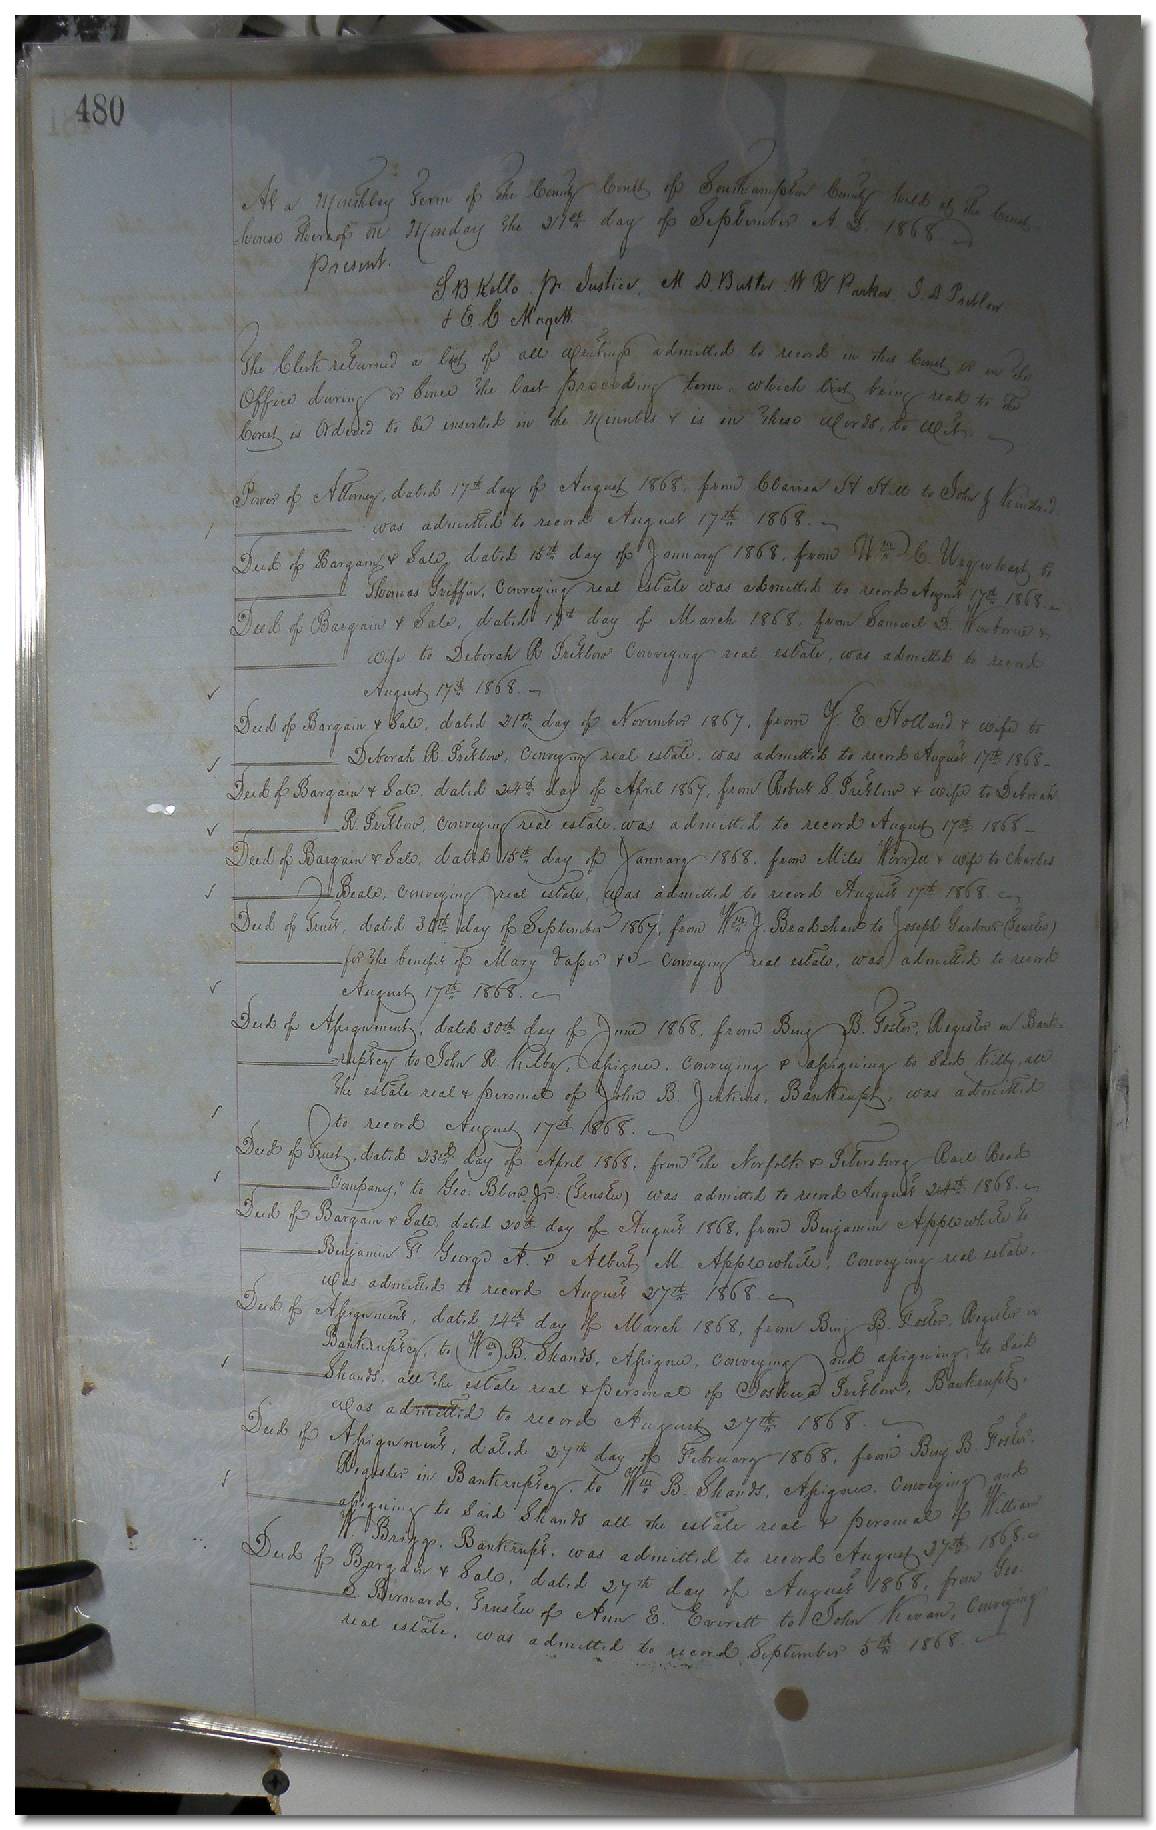 480
At a Monthly Term of the County Court of Southampton County held at the Court
house thereof on Monday the 21st day of September A. D. 1868.
Present.
S B Kello. pr Justice, M D Butler W R Parker. J. D Pretlow
& E. C
The Clerk returned a list of all Writings admitted to record in this Court or in the
Office during or Since the last preceeding term, which list being read to the
Court is Ordered to be inserted in the Minutes & is in these Words, to Wit.
Power of Attorney, dated 17th day of August 1868. from Clarisa H Hill to John J Kindred
was admitted to record August 17th 1868.
Deed of Bargain & Sale, dated 15th day of January 1868. from Wm C. Urquhart to
Thomas Griffin, Conveying real estate was admitted to record August 17th 1868.
Deed of Bargain & Sale, dated day of March 1868. from Samuel D. &
Wife to Deborah R Pretlow Conveying real estate, was admitted to record
August 17th 1868.
Deed of Bargain & Sale, dated 21st day of November 1867, from E Holland & wife to
Deborah R. Pretlow, Conveying real estate. was admitted to record August 17th 1868
Deed of Bargain & Sale, dated 24th day of April 1867, from Robert S Pretlow & wife to Deborah
R. Pretlow, conveying real estate was admitted to record August 17th 1868
Deed of Bargain & Sale, dated 15th day of January 1868. from Miles Worrell & wife to Charles
Beale, Conveying real estate, was admitted to record August 17th 1868
Deed of Trust, dated 30th day of September 1867, from Wm J. Bradshaw to Joseph Gardner (Trustee)
for the benefit of Mary &c Conveying real estate, was admitted to record
August 17th 1868.
Deed of Assignment, dated 30th day of June 1868, from Benj B. Foster, Register in Bank-
ruptcy to John R Kilby, Assignee, Conveying & assigning to Said Kilby, all
the estate real & personal of John B. Jenkins, Bankrupt, was admitted
to record August 17th 1868.
Deed of Trust, dated 23rd day of April 1868, from "the Norfolk & Petersburg Rail Road
Company," to Geo. Blow Jr: (Trustee) was admitted to record August 24th 1868.
Deed of Bargain & Sale, dated 20th day of August 1868, from Benjamin Applewhite to
Benjamin F George A. & Albert M. Applewhite, Conveying real estate,
was admitted to record August 27th 1868.
Deed of Assignment, dated 14th day of March 1868, from Benj B. Foster, Register in
Bankruptcy, to Wm B. Shands, Assignee, Conveying and assigning, to Said
Shands, all the estate real & personal of Joshua Pretlow, Bankrupt,
was admitted to record August 27th 1868.
Deed of Assignment, dated 27th day of February 1868, from Benj B. Foster,
Register in Bankruptcy, to Wm B. Shands, Assignee, Conveying and
assigning to Said Shands all the estate real & personal of William
W. Briggs, Bankrupt, was admitted to record August 27th 1868.
Deed of Bargain & Sale, dated 27th day of August 1868, from Geo.
S Bernard, Trustee of Ann E. Everett to John Kevan, Conveying
real estate, was admitted to record September 5th 1868.